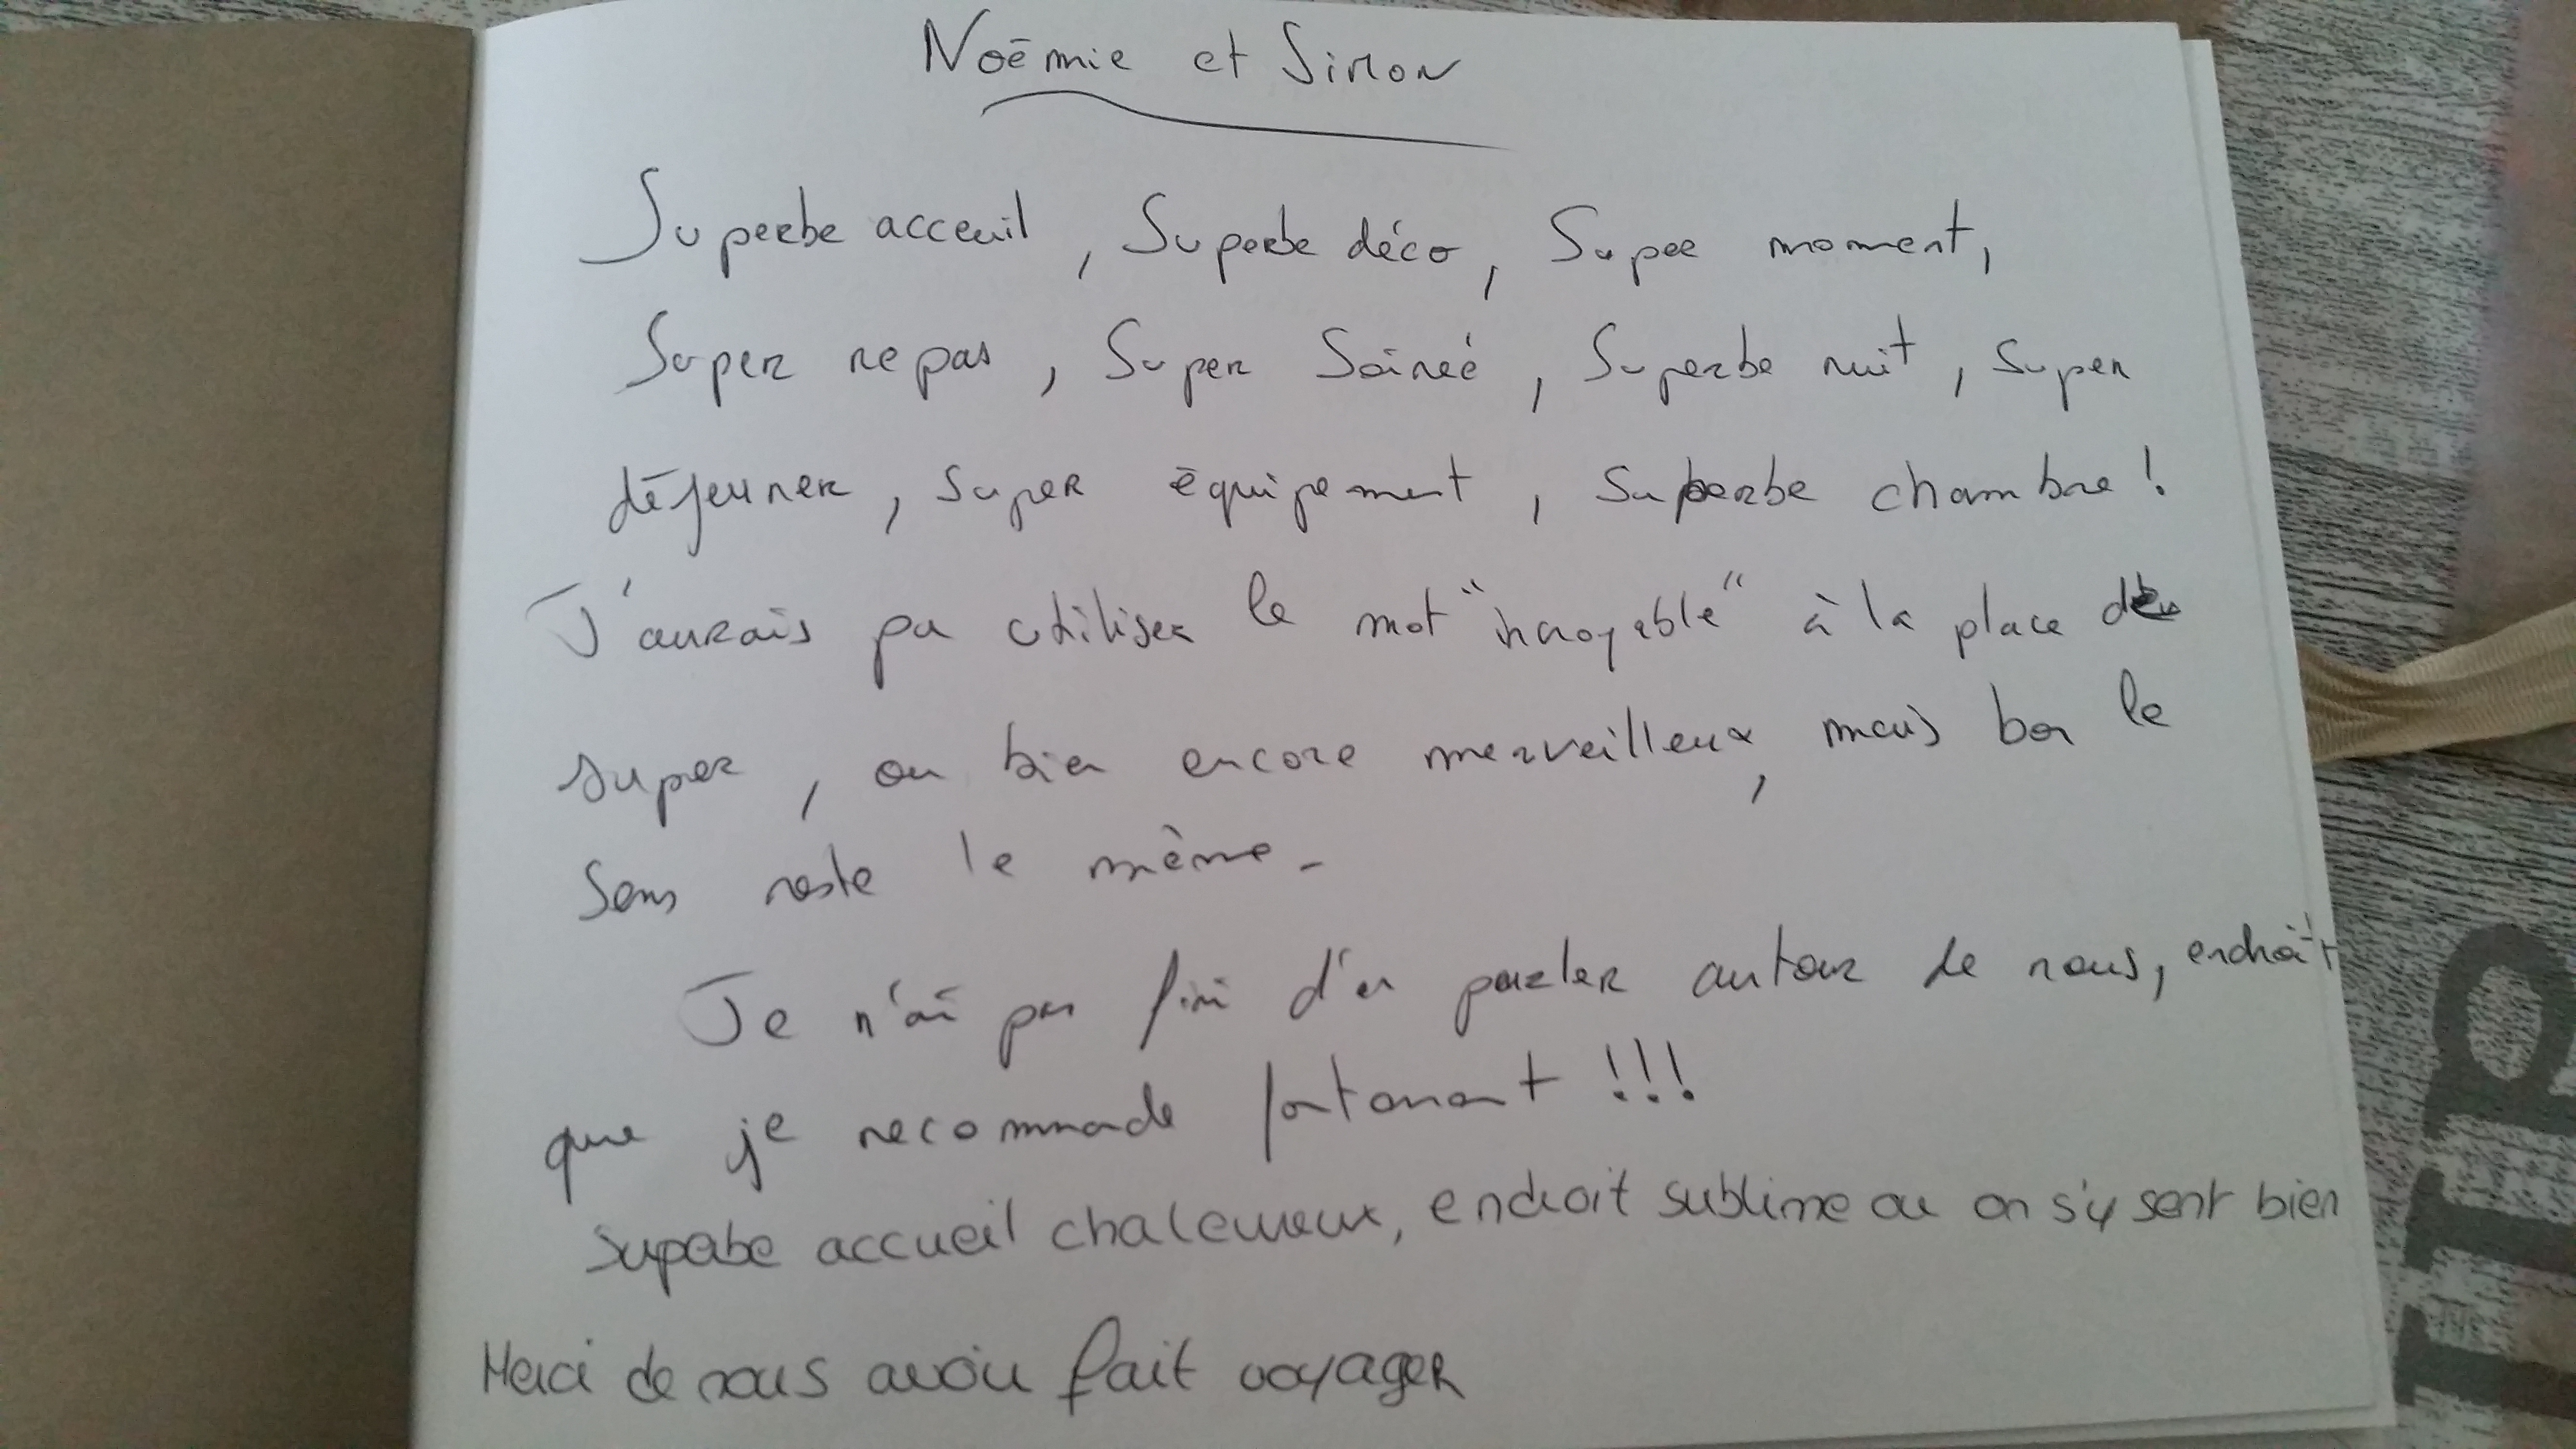 Noémie et Simon
Superbe acceuil, Superbe déco, Super moment,
Super repas, Super Soireé, Superbe nuit, super
déjeuner, super équipement, superbe chambre !
J'aurais pu utiliser le mot "incroyable" à la place de
super, ou bien encore merveilleux, mais bon le
sens reste le même.
Je n'ai pas fini d'en parler autour de nous, endroit
que je recommade fortement !!!
superbe accueil chaleureux, endroit sublime ou on s'y sent bien
Merci de nous avoir fait voyager